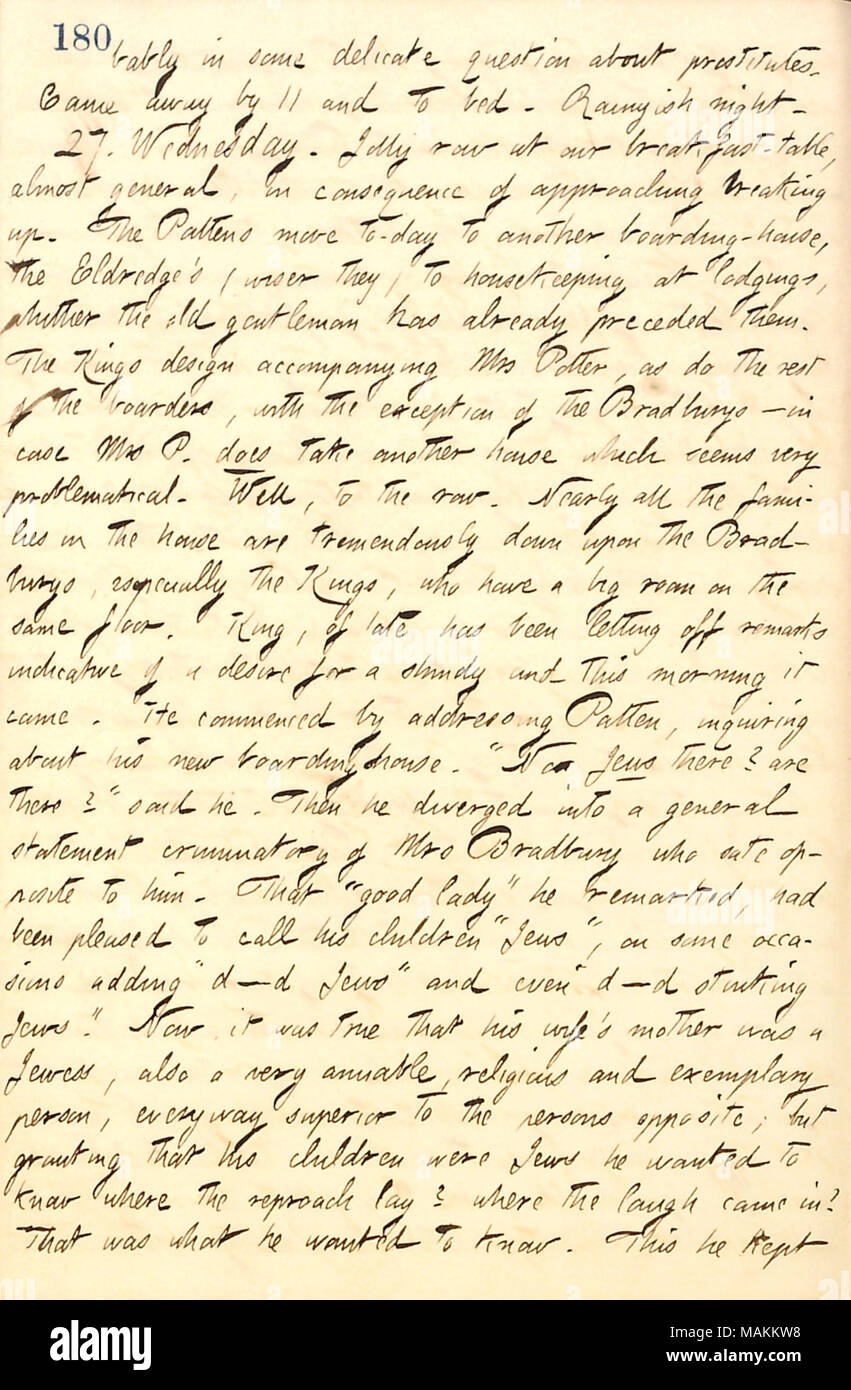 180
bably in some delicate question about prostitutes.
Came away by 11 and to bed. Rainyish night.
27. Wednesday. Jolly row at our breakfast-table,
almost general, in consequence of approaching breaking
up. The Pattens move to-day to another boarding-house,
the Eldredge's (wiser they) to housekeeping at lodgings,
whither the old gentleman has already preceded them.
The Kings design accompanying Mrs Potter, as do the rest
of the boarders, with the exception of the Bradburys — in
case Mrs P. does take another house which seems very
problematical. Well, to the row. Nearly all the fami-
lies in the house are tremendously down upon the Brad-
burys, especially the Kings, who have a big room on the
same floor. King, of late has been letting off remarks
indicative of a desire for a shindy and this morning it
came. He commenced by addressing Patten, inquiring
about his new boarding house. "No Jews there? are
there?" said he. Then he diverged into a general
statement criminatory of Mrs Bradbury who sate op-
posite to him. That "good lady" he remarked, had
been pleased to call his children "Jews", on some occa-
sions adding "d—d Jews" and even "d—d stinking
Jews". Now it was true that his wife's mother was a
Jewess, also a very amiable, religious and exemplary
person, everyway superior to the persons opposite; but
granting that his children were Jews he wanted to
know where the reproach lay? where the laugh came in?
That was what he wanted to know. This he kept
alamy
Image ID: MAKKW8
www.alamy.com